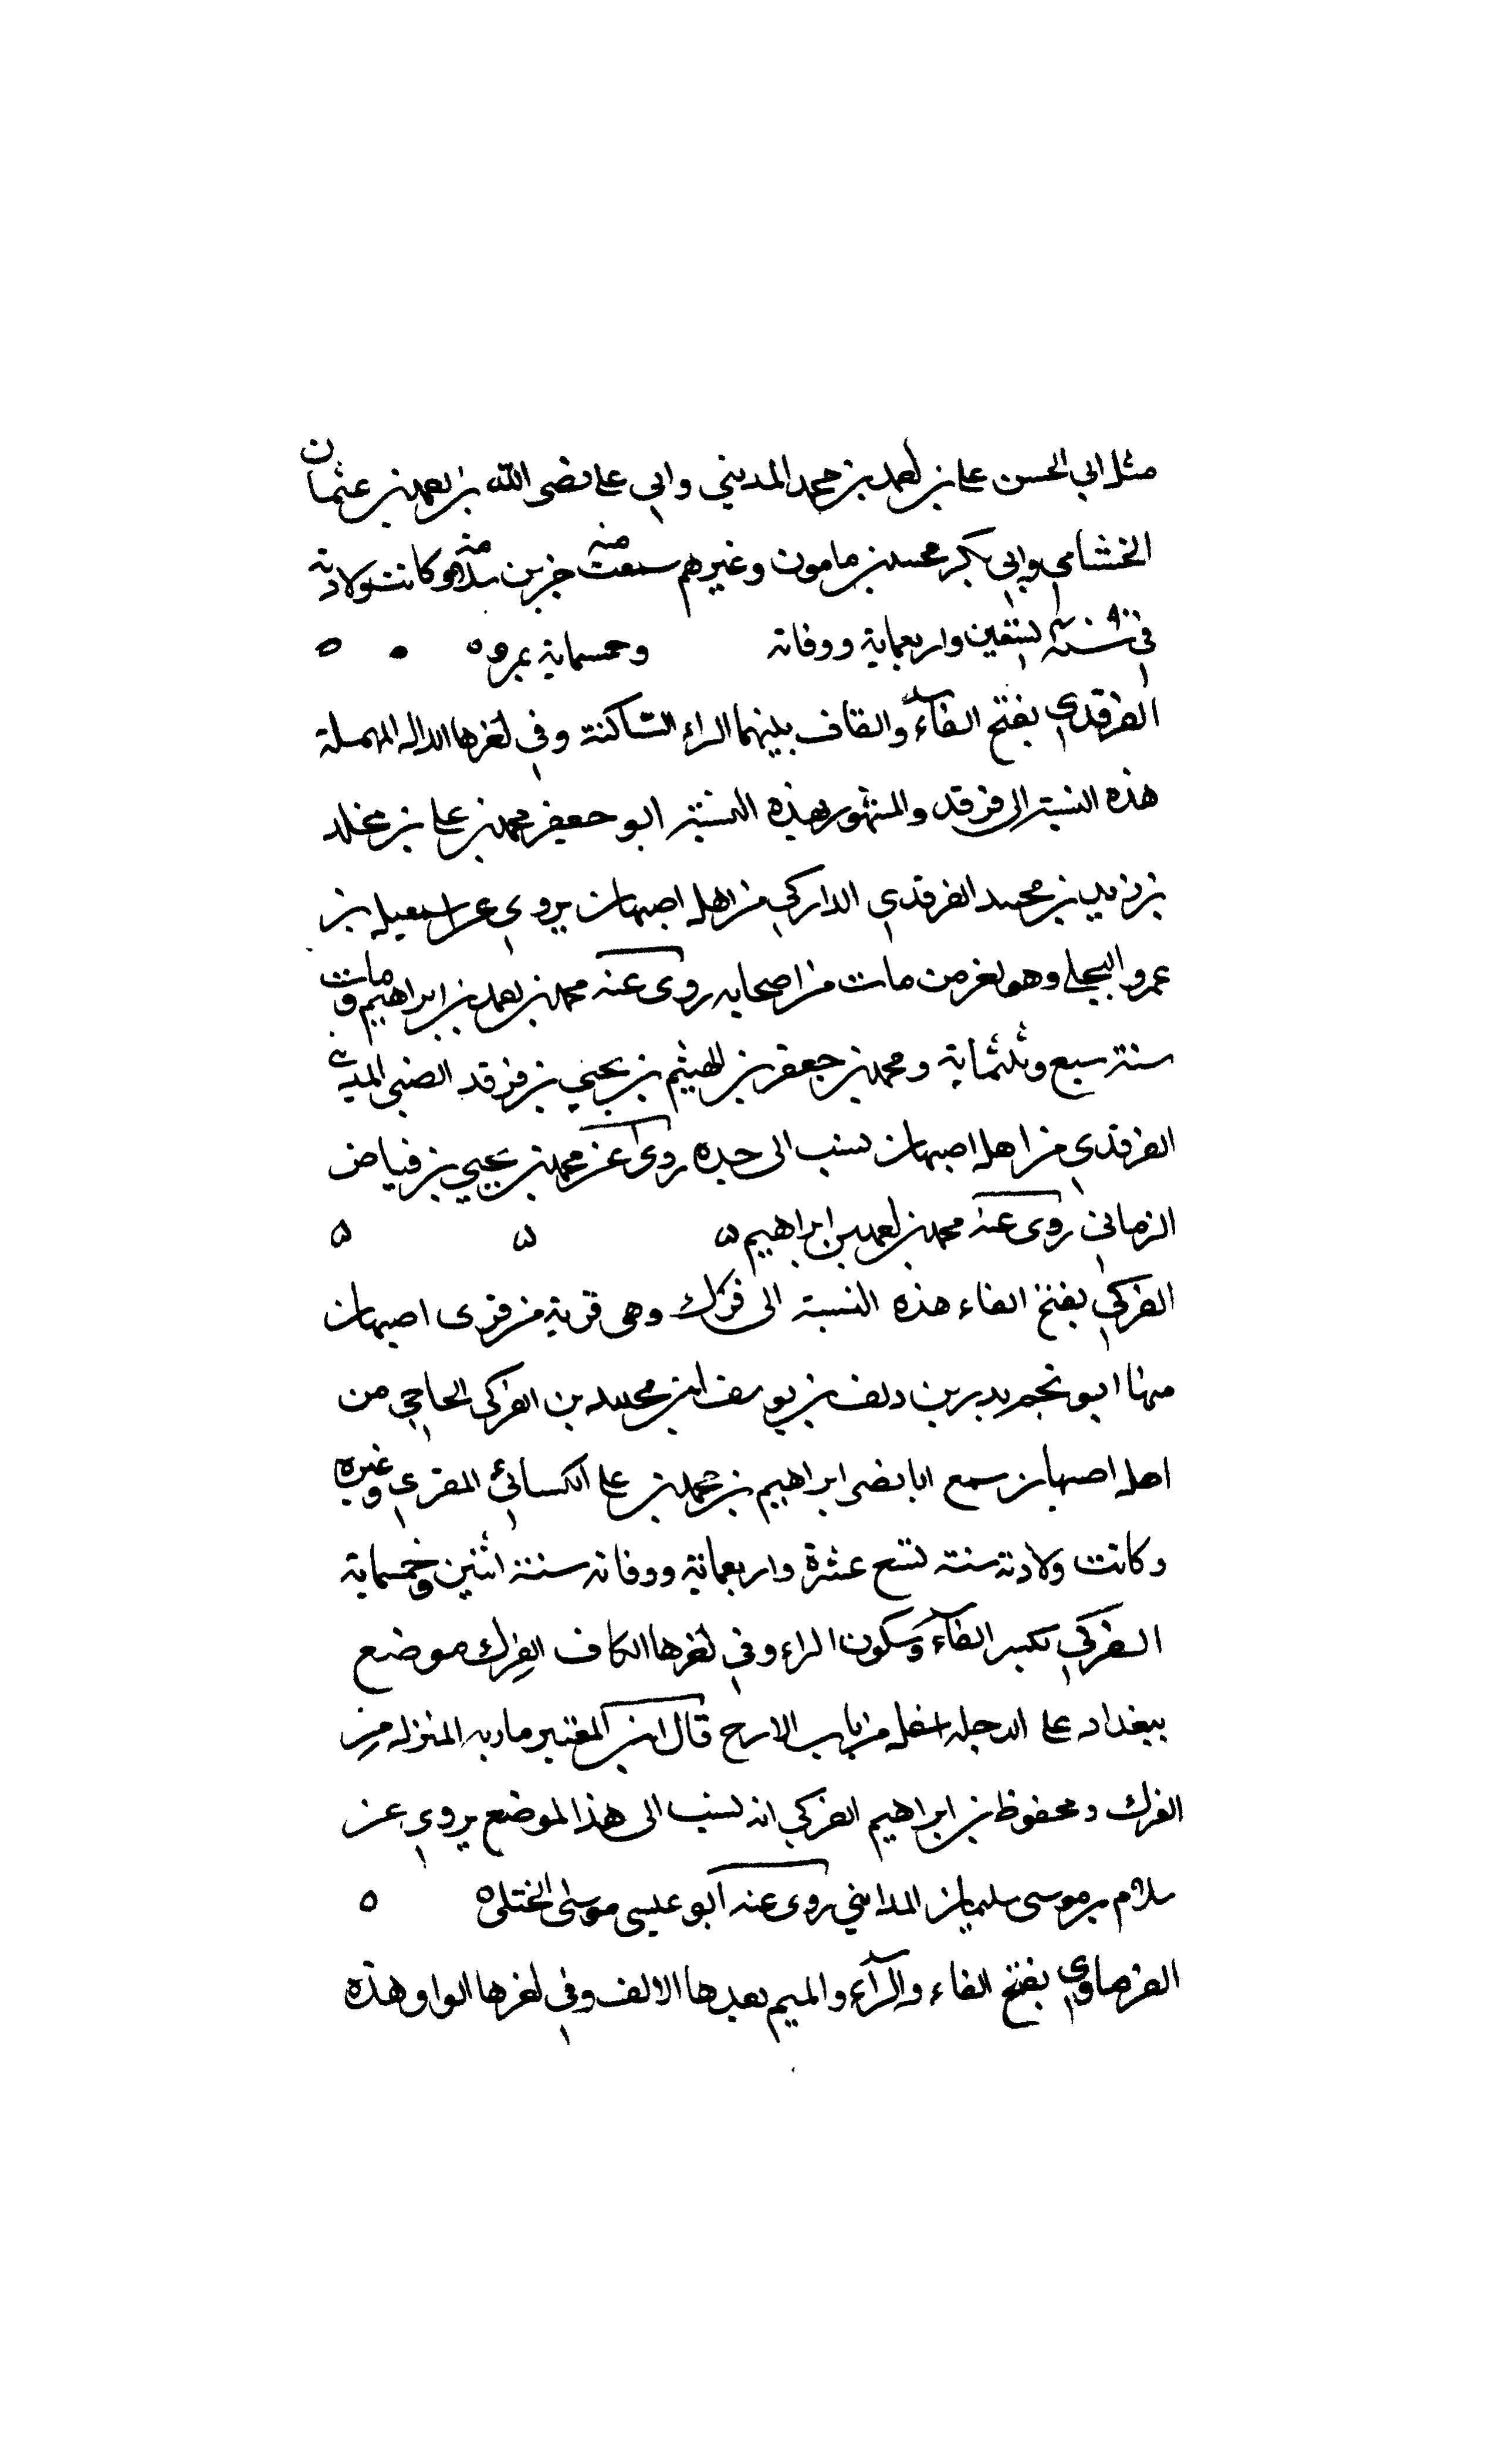 مثل ابي الحسن علي بن احمد بن محمد المديني وابي علي نصر الله بن احمد بن عثمان
الخشنامي وابي بكر محمد بن مامون وغيرهم سمعت منه جزين بسلامه وكانت ولادته
في سنة ستين واربعماية ووفاته وخمسماية بمرو ه
الفرقدي بفتح الفاء والقاف بينهما الراء الساكنة وفي اخرها الدال المهملة
هذه النسبة الى فرقد والمشهور بهذه النسبة ابو جعفر محمد بن علي بن مخلد
بن يزيد بن محمد الفرقدي الداركي من اهل اصبهان يروي عن اسمعيل بن
عمرو البجلي وهو اخر من مات من اصحابه روى عنه محمد بن احمد بن ابراهيم ومات
سنة سبع وثلثماية ومحمد بن جعفر بن الهيثم بن يحيى بن فرقد الضبي المديني
الفرقدي من اهل اصبهان نسب الى جده روى عن محمد بن يحيى بن فياض
الزماني روى عنه محمد بن احمد بن ابراهيم ه
الفركي بفتح الفاء هذه النسبة الى فرك وهي قرية من قرى اصبهان
منها ابو نجم بدر بن دلف بن يوسف ابن محمد بن الفركي الحاجي من
اهل اصبهان سمع ابا نصر ابراهيم بن محمد بن علي الكسائي المقري وغيره
وكانت ولادته سنة تسع عشرة واربعماية ووفاته سنة اثنين وخمسماية
الفركي بكسر الفاء وسكون الراء وفي اخرها الكاف الفرك موضع
ببغداد على الدجلة اسفل من باب الازج قال ابن المعتبر ماربه المنزله من
الفرك ومحفوظ بن ابراهيم الفركي انه نسب الى هذا الموضع يروي عن
سلام بن موسى سليمان المدايني روى عنه ابو عيسى موسى الختلي ه
الفرماوي بفتح الفاء والراء والميم بعدها الالف وفي اخرها الواو هذه